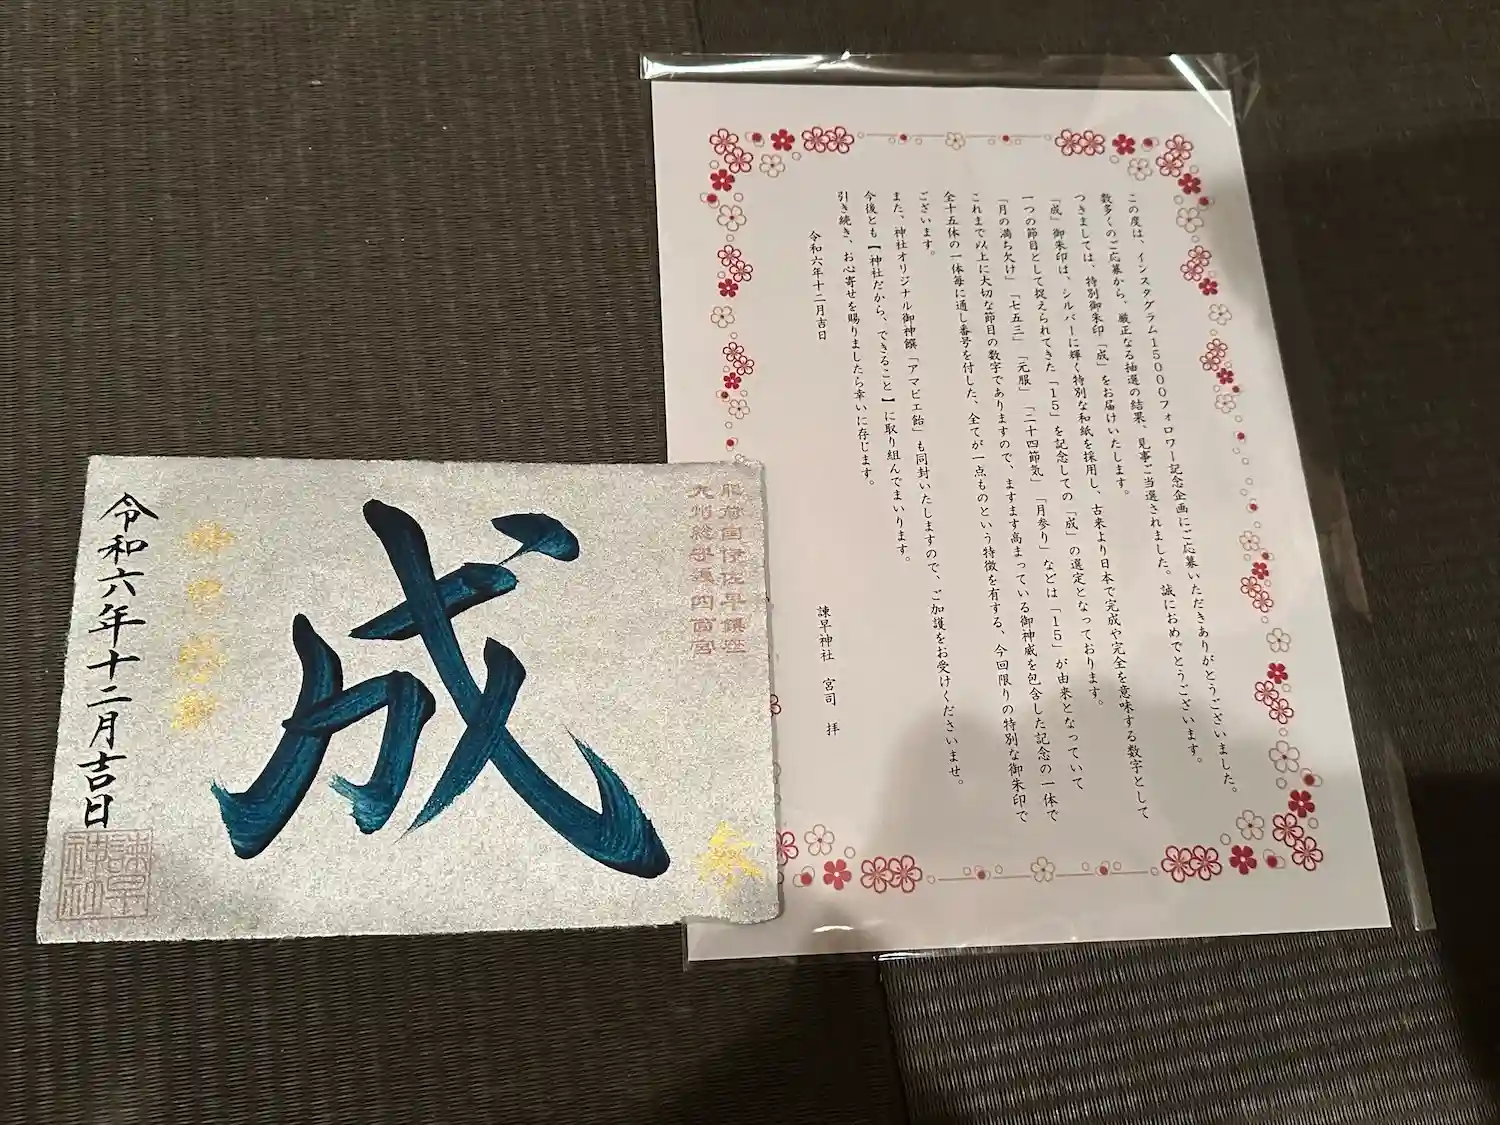 この度は、インスタグラム１５０００フォロワー記念企画にご応募いただきありがとうございました。
数多くのご応募から、厳正なる抽選の結果、見事ご当選されました。誠におめでとうございます。
つきましては、特別御朱印「成」をお届けいたします。
「成」御朱印は、シルバーに輝く特別な和紙を採用し、古来より日本で完成や完全を意味する数字として
一つの節目として捉えられてきた「１５」を記念しての「成」の選定となっております。
「月の満ち欠け」「七五三」「元服」「二十四節気」「月参り」などは「１５」が由来となっていて
これまで以上に大切な節目の数字でありますので、ますます高まっている御神威を包含した記念の一体で
全十五体の一体毎に通し番号を付した、全てが一点ものという特徴を有する、今回限りの特別な御朱印で
ございます。
また、神社オリジナル御神饌「アマビエ飴」も同封いたしますので、ご加護をお受けくださいませ。
今後とも【神社だから、できること】に取り組んでまいります。
引き続き、お心寄せを賜りましたら幸いに存じます。
令和六年十二月吉日
諫早神社　宮司　拝
肥前国伊佐早鎮座
九州総守護四面宮
成
令和六年十二月吉日
諫早神社